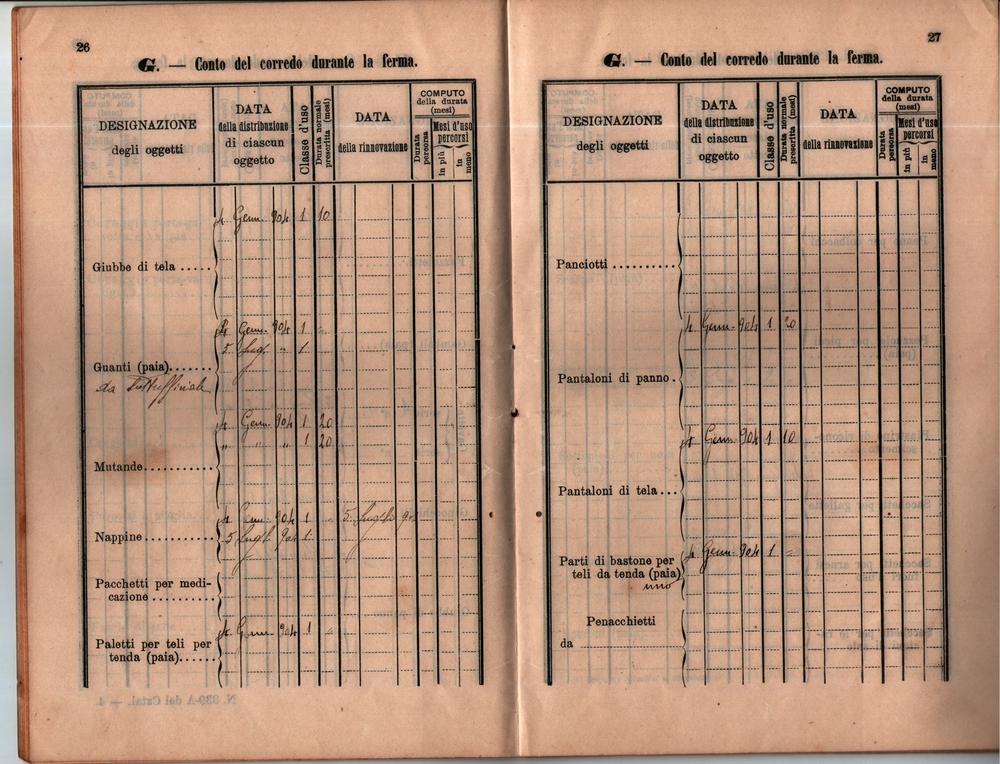 26
G. — Conto del corredo durante la ferma.
DESIGNAZIONE
degli oggetti
DATA
della distribuzione
di ciascun
oggetto
Classe d'uso
Durata normale
prescritta (mesi)
DATA
della rinnovazione
COMPUTO
della durata
(mesi)
Durata
percorsa
Mesi d'uso
percorsi
in più
in
meno
Genn. 904 1 10
Giubbe di tela .....
Genn. 904 1 "
5 Lugl. " 1
Guanti (paia).......
da
Genn. 904 1 20
" " " 1 20
Mutande............
Genn. 904 1 " 5 Luglio 90
5 Lugl. 904 1
Nappine............
Pacchetti per medi-
cazione ..........
Genn. 904 1 "
Paletti per teli per
tenda (paia)......
27
G. — Conto del corredo durante la ferma.
DESIGNAZIONE
degli oggetti
DATA
della distribuzione
di ciascun
oggetto
Classe d'uso
Durata normale
prescritta (mesi)
DATA
della rinnovazione
COMPUTO
della durata
(mesi)
Durata
percorsa
Mesi d'uso
percorsi
in più
in
meno
Panciotti ..........
Genn. 904 1 20
Pantaloni di panno .
Genn. 904 1 10
Pantaloni di tela ...
Genn. 904 1 "
Parti di bastone per
teli da tenda (paia)
uno
Penacchietti
da ...............